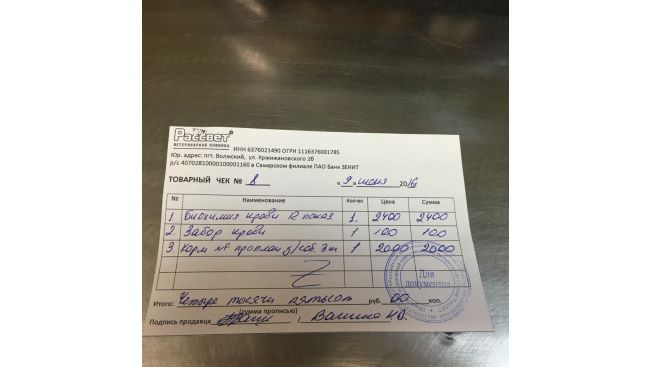 Рассвет
ВЕТЕРИНАРНАЯ КЛИНИКА
ИНН 6376021490 ОГРН 1116376001785
Юр. адрес: пгт. Волжский, ул. Кржижановского 2б
р/с 40702810000100001160 в Самарском филиале ПАО Банк ЗЕНИТ
ТОВАРНЫЙ ЧЕК № 8 « 9 » июня 2016
№ Наименование Кол-во Цена Сумма
1 Биохимия крови 12 показ 1 2400 2400
2 Забор крови 1 100 100
3 Корм NF проплан д/соб 3 кг 1 2000 2000
Итого: Четыре тысячи пятьсот руб. 00 коп.
(сумма прописью)
Подпись продавца
Для
документов